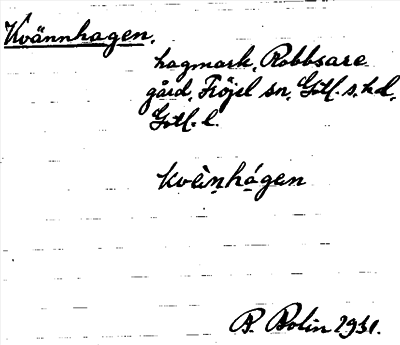 Kvännhagen.
hagmark, Robbsare
gård, Fröjel sn, Gotl. s. hd,
Gotl. l.
kvèi̯n̥hágen
B. Bolin 1931.